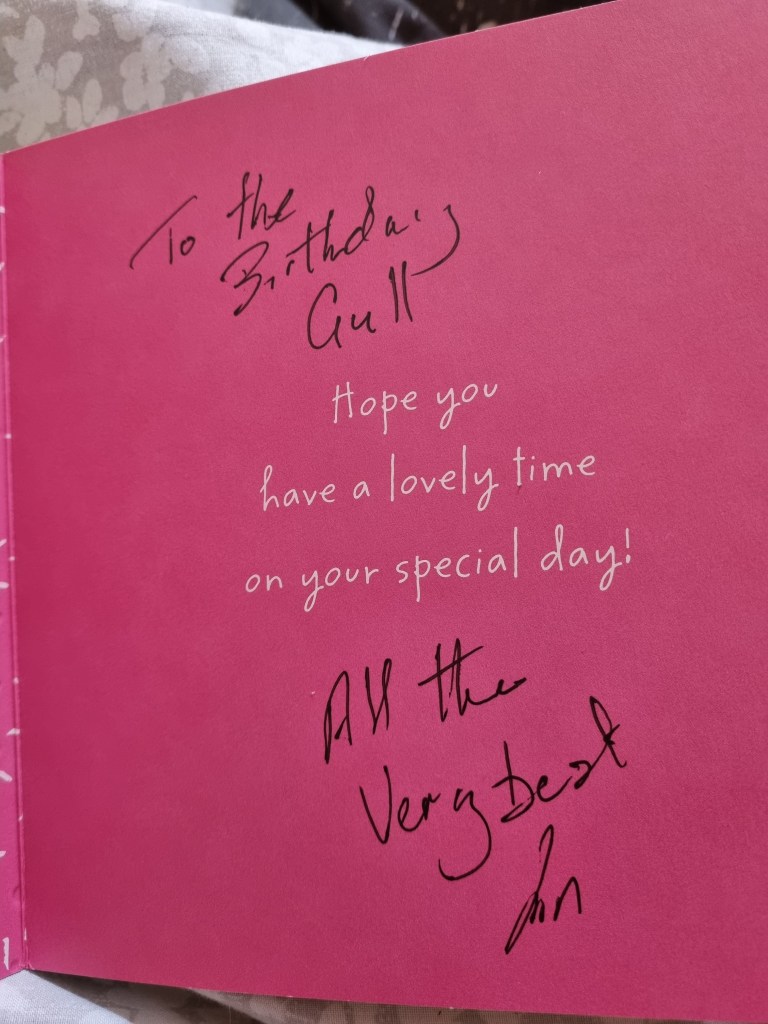 To the
Birthday
Gull
Hope you
have a lovely time
on your special day!
All the
Very best